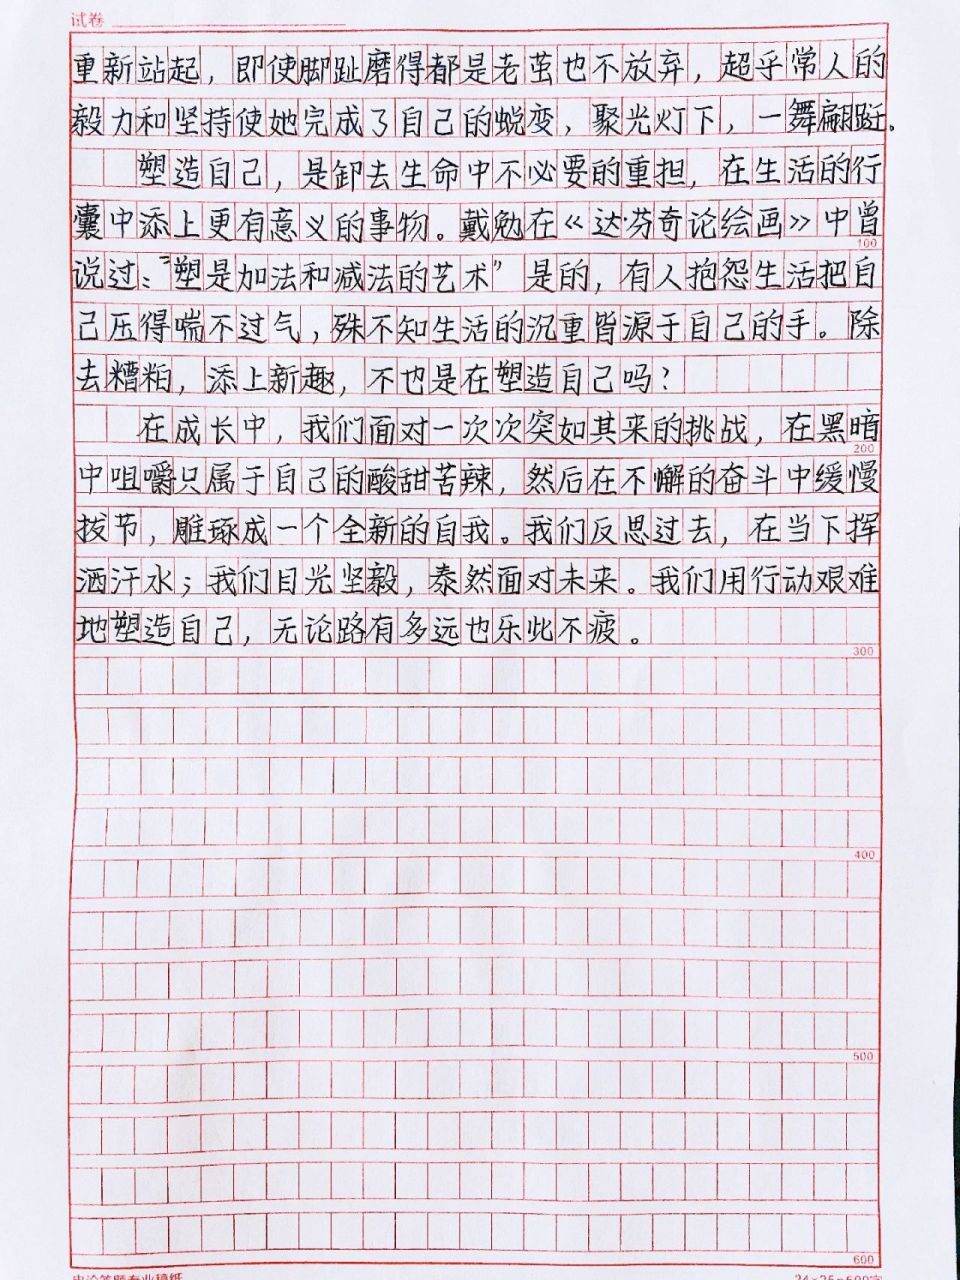 试卷
重新站起，即使脚趾磨得都是老茧也不放弃，超乎常人的
毅力和坚持使她完成了自己的蜕变，聚光灯下，一舞翩跹。
塑造自己，是卸去生命中不必要的重担，在生活的行
囊中添上更有意义的事物。戴勉在《达·芬奇论绘画》中曾
100
说过："塑是加法和减法的艺术"是的，有人抱怨生活把自
己压得喘不过气，殊不知生活的沉重皆源于自己的手。除
去糟粕，添上新趣，不也是在塑造自己吗？
在成长中，我们面对一次次突如其来的挑战，在黑暗
200
中咀嚼只属于自己的酸甜苦辣，然后在不懈的奋斗中缓慢
拔节，雕琢成一个全新的自我。我们反思过去，在当下挥
洒汗水；我们目光坚毅，泰然面对未来。我们用行动艰难
地塑造自己，无论路有多远也乐此不疲。
300
400
500
600